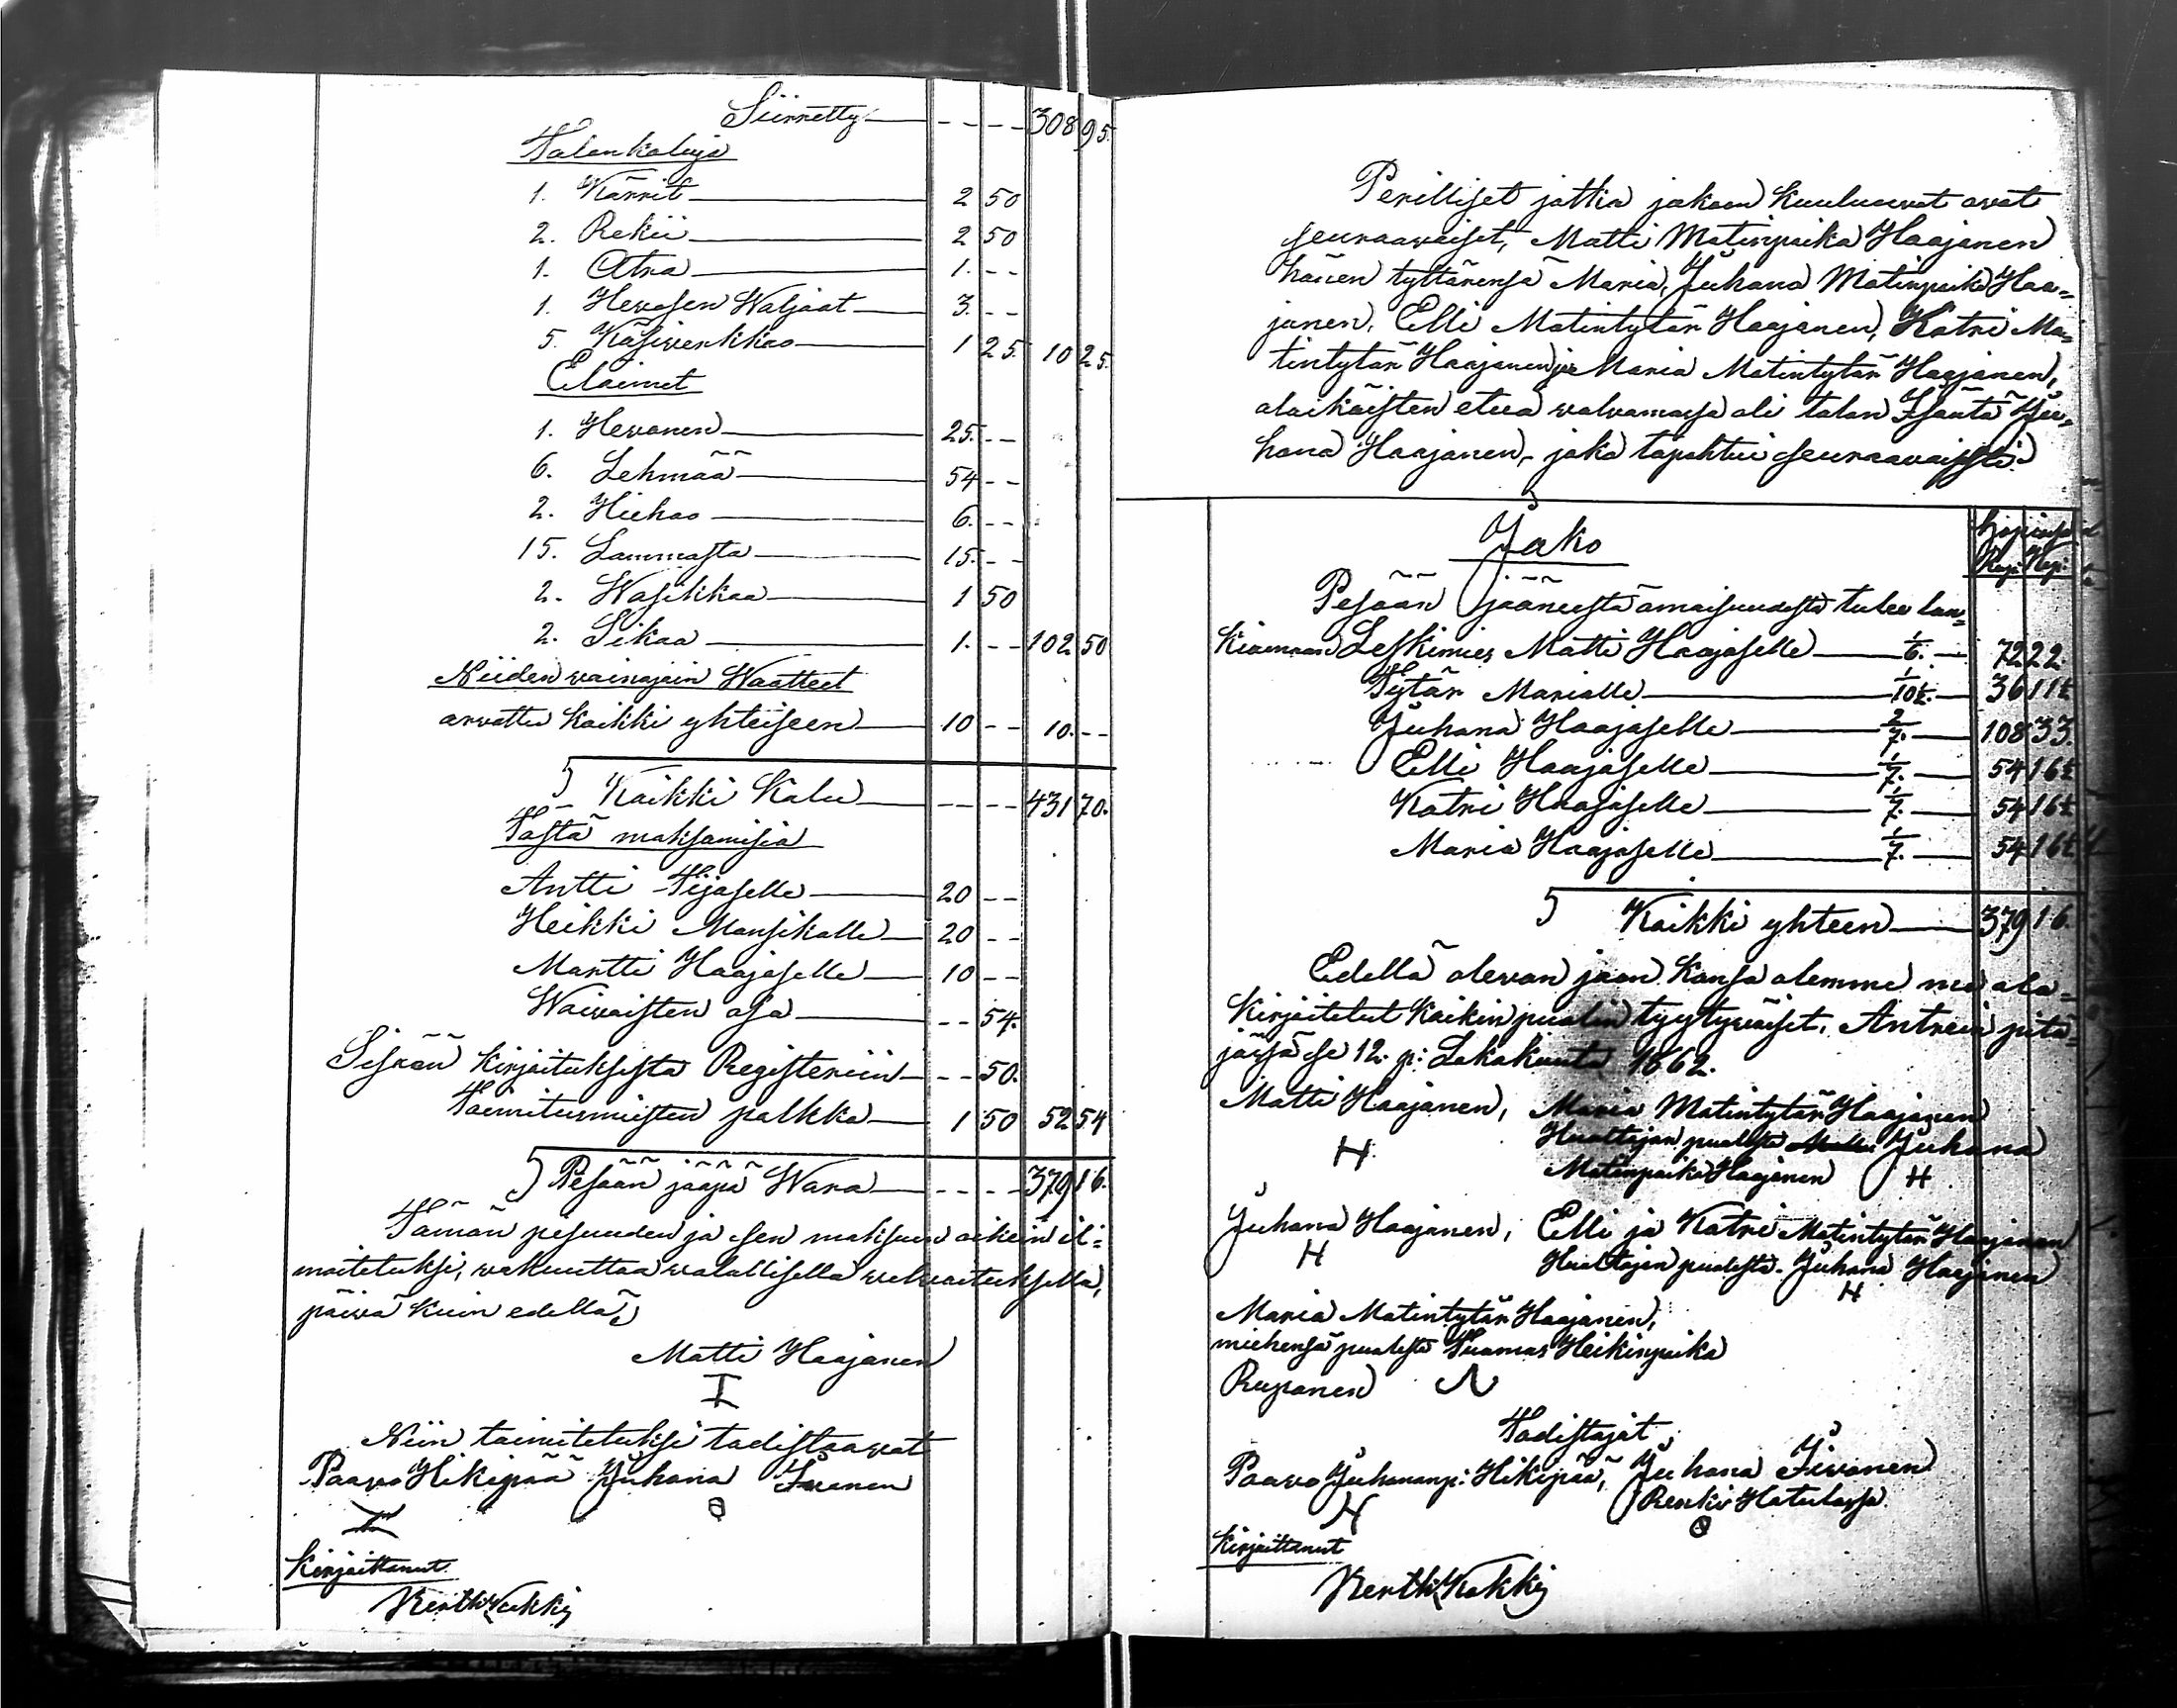 Siirretty - - - - 308 95.
Talonkaluja
1. Kärrit 2 50
2. Rekii 2 50
1. Atra 1. - -
1. Hevosen Waljaat 3. - -
5. Käsiverkkoo 1 25. 10 25.
Elaimet
1. Hevonen 25. - -
6. Lehmää 54 - -
2. Hiehoo 6. - -
15. Lammasta 15. - -
2. Wasikkaa 1 50
2. Sikaa 1. - - 102 50
Niiden wainajain Waatteet
arvattu kaikki yhteiseen 10 - - 10. - -
Kaikki Kalu - - - - 431 70.
Tästä maksamisia
Antti Tijaselle 20 - -
Heikki Mansikalle 20 - -
Martti Haajaselle 10 - -
Waivaisten osa - - 54.
Sisään kirjoituksesta Registeriin - - 50.
Toimitusmiesten palkka 1 50 52 54
Pesään jääpä Wara - - - - 379 16.
Tämän pesuuden ja sen maksuun oikein il=
moitetuksi, wakuuttaa walallisella welvoituksella,
päivä kuin edellä,
Matti Haajanen
I
Niin toimitetuksi todistaawat
Paavo Hikipää Juhana Iivonen
Kirjoittanut
Pertti Kukki

Perilliset jotka jakoon kuuluuvat ovat
seuraavaiset, Matti Matinpoika Haajanen
hänen tyttärensä Maria, Juhana Matinpoika Haa=
janen, Elli Matintytär Haajanen, Katri Ma=
tintytär Haajanen ja Maria Matintytär Haajanen,
alaikäisten etua walvomassa oli talon Isäntä Ju=
hana Haajanen, joko tapahtui seuraavaisesti:
Jako
Hopiassa
Rupl. Kop.
Pesään jääneestä omaisuudesta tulee lan=
Leskimies Matti Haajaselle 1/6. 72 22.
Tytär Marialle 1/10½. 36 11½
Juhana Haajaselle 2/7. 108 33.
Elli Haajaselle 1/7. 54 16½
Katri Haajaselle 1/7. 54 16½
Maria Haajaselle 1/7. 54 16½
Kaikki yhteen 379 16.
Edellä olevan jaon kansa olemme me ala=
kirjoitetut kaikin puolin tyytyväiset. Antrein pitä=
jässä se 12. p: Lokakuuta 1862.
Matti Haajanen, Maria Matintytär Haajanen
H Huoltajan puolesta Juhana
Matinpoika Haajanen H
Juhana Haajanen, Elli ja Katri Matintytär Haajanen
H Huoltajan puolesta. Juhana Haajanen
H
Maria Matintytär Haajanen,
miehensä puolesta Tuomas Heikinpoika
Ruponen N
Todistajat
Paavo Juhananp: Hikipää, Juhana Iivonen
H Renki Hatulassa
Kirjoittanut
Pertti Kukki